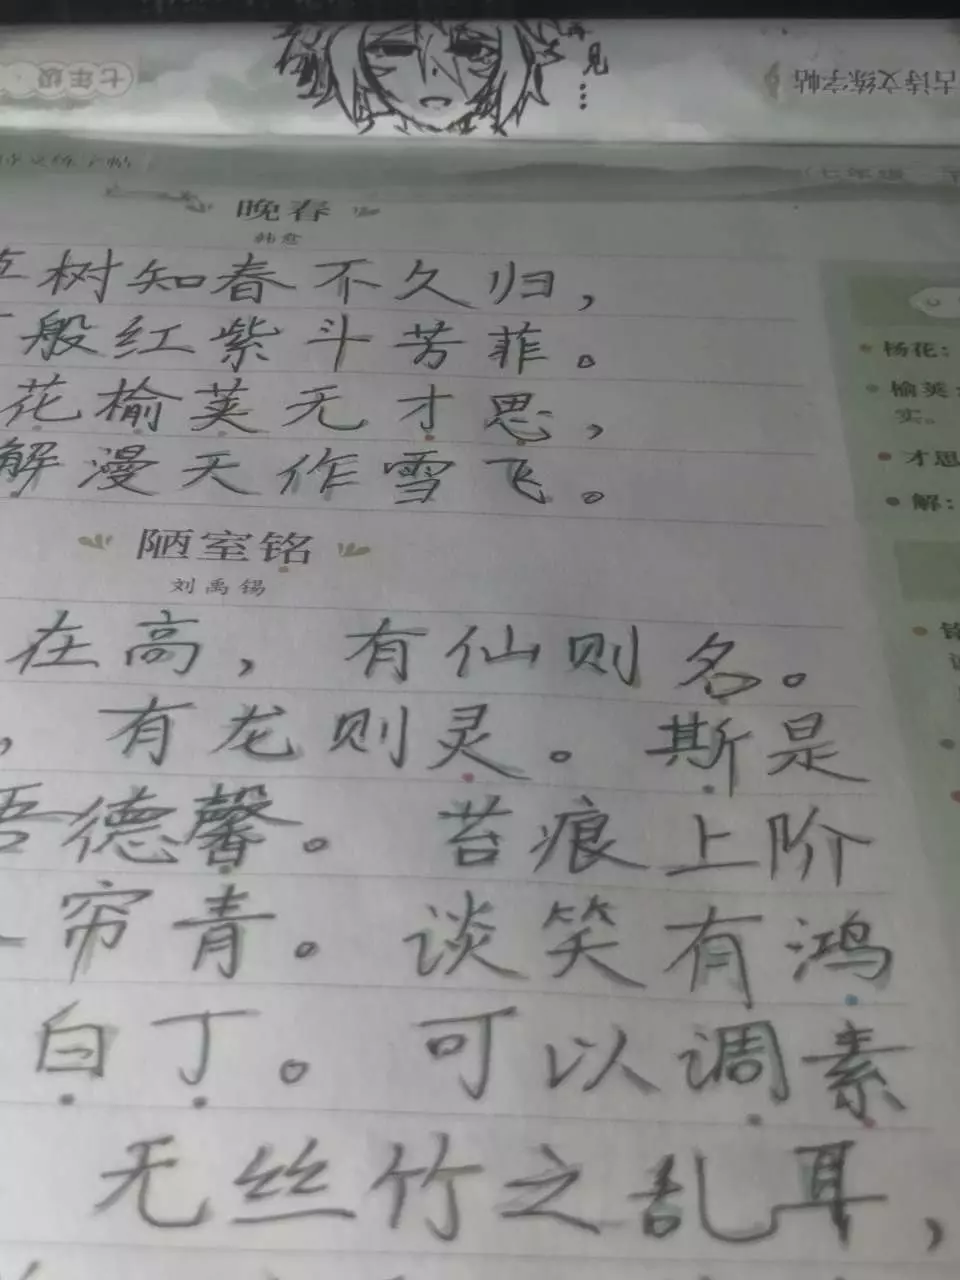 再见……
古诗文练字帖
七年级
晚春
韩愈
草树知春不久归，
般红紫斗芳菲。
花榆荚无才思，
解漫天作雪飞。
杨花：
榆荚：
实。
才思
解：
陋室铭
刘禹锡
在高，有仙则名。
，有龙则灵。斯是
吾德馨。苔痕上阶
帘青。谈笑有鸿
白丁。可以调素
无丝竹之乱耳，